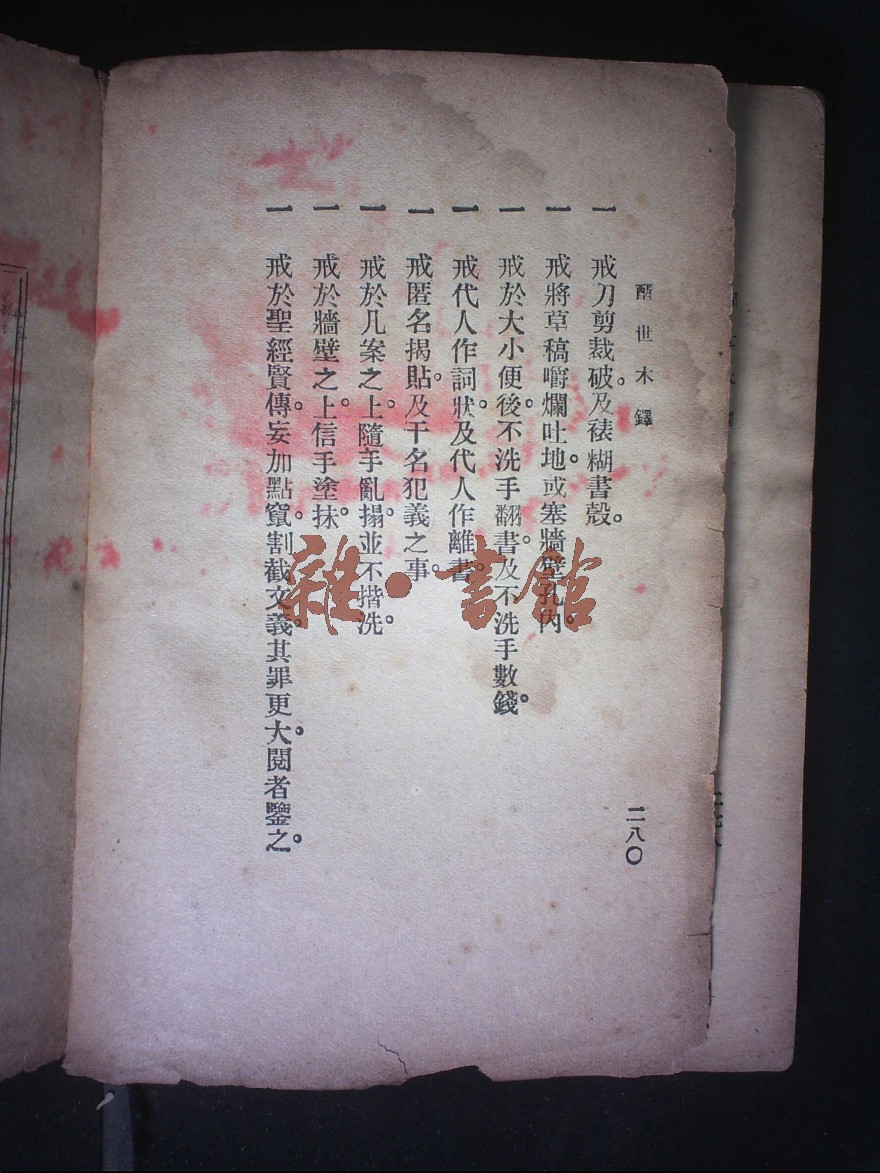 醒世木鐸
二八〇
一 戒刀剪裁破。及裱糊書殼。
一 戒將草稿嚼爛吐地。或塞牆壁孔內。
一 戒於大小便後。不洗手翻書。及不洗手數錢。
一 戒代人作詞狀。及代人作離書。
一 戒匿名揭貼。及干名犯義之事。
一 戒於几案之上。隨手亂搨。並不揩洗。
一 戒於牆壁之上。信手塗抹。
一 戒於聖經賢傳。妄加點竄。割截文義。其罪更大。閱者鑒之。
雜·書館